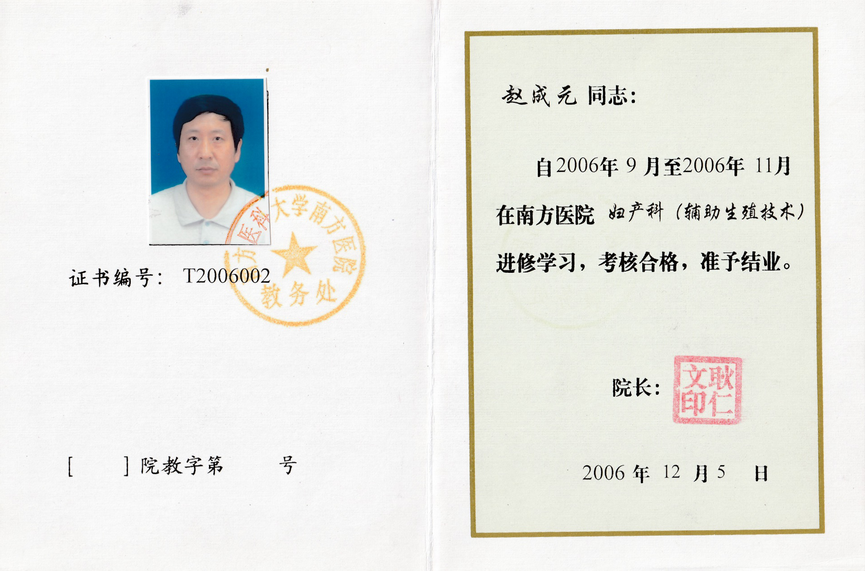 方医科大学南方医院
教务处
证书编号: T2006002
[ ]院教字第 号
赵成元 同志:
自2006年 9 月至2006年 11月
在南方医院 妇产科(辅助生殖技术)
进修学习,考核合格,准予结业。
院长:
耿仁文印
2006 年 12 月 5 日